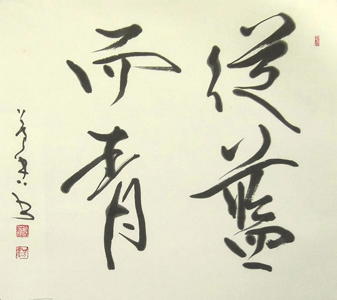 從藍
而青